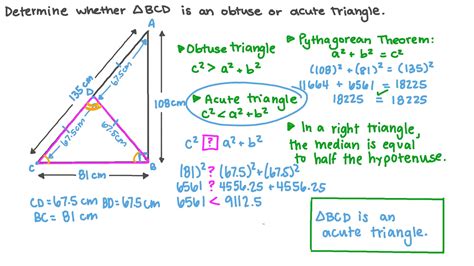 Determine whether △BCD is an obtuse or acute triangle.
A
135 cm
67.5 cm
D
108cm
67.5 cm
67.5 cm
C
B
81 cm
CD = 67.5 cm BD = 67.5 cm
BC = 81 cm
▶ Obtuse triangle
c² > a² + b²
▶ Acute triangle
c² < a² + b²
c² ? a² + b²
(81)² ? (67.5)² + (67.5)²
6561 ? 4556.25 + 4556.25
6561 < 9112.5
▶ Pythagorean Theorem:
a² + b² = c²
(108)² + (81)² = (135)²
11664 + 6561 = 18225
18225 = 18225
▶ In a right triangle,
the median is equal
to half the hypotenuse.
△BCD is an
acute triangle.